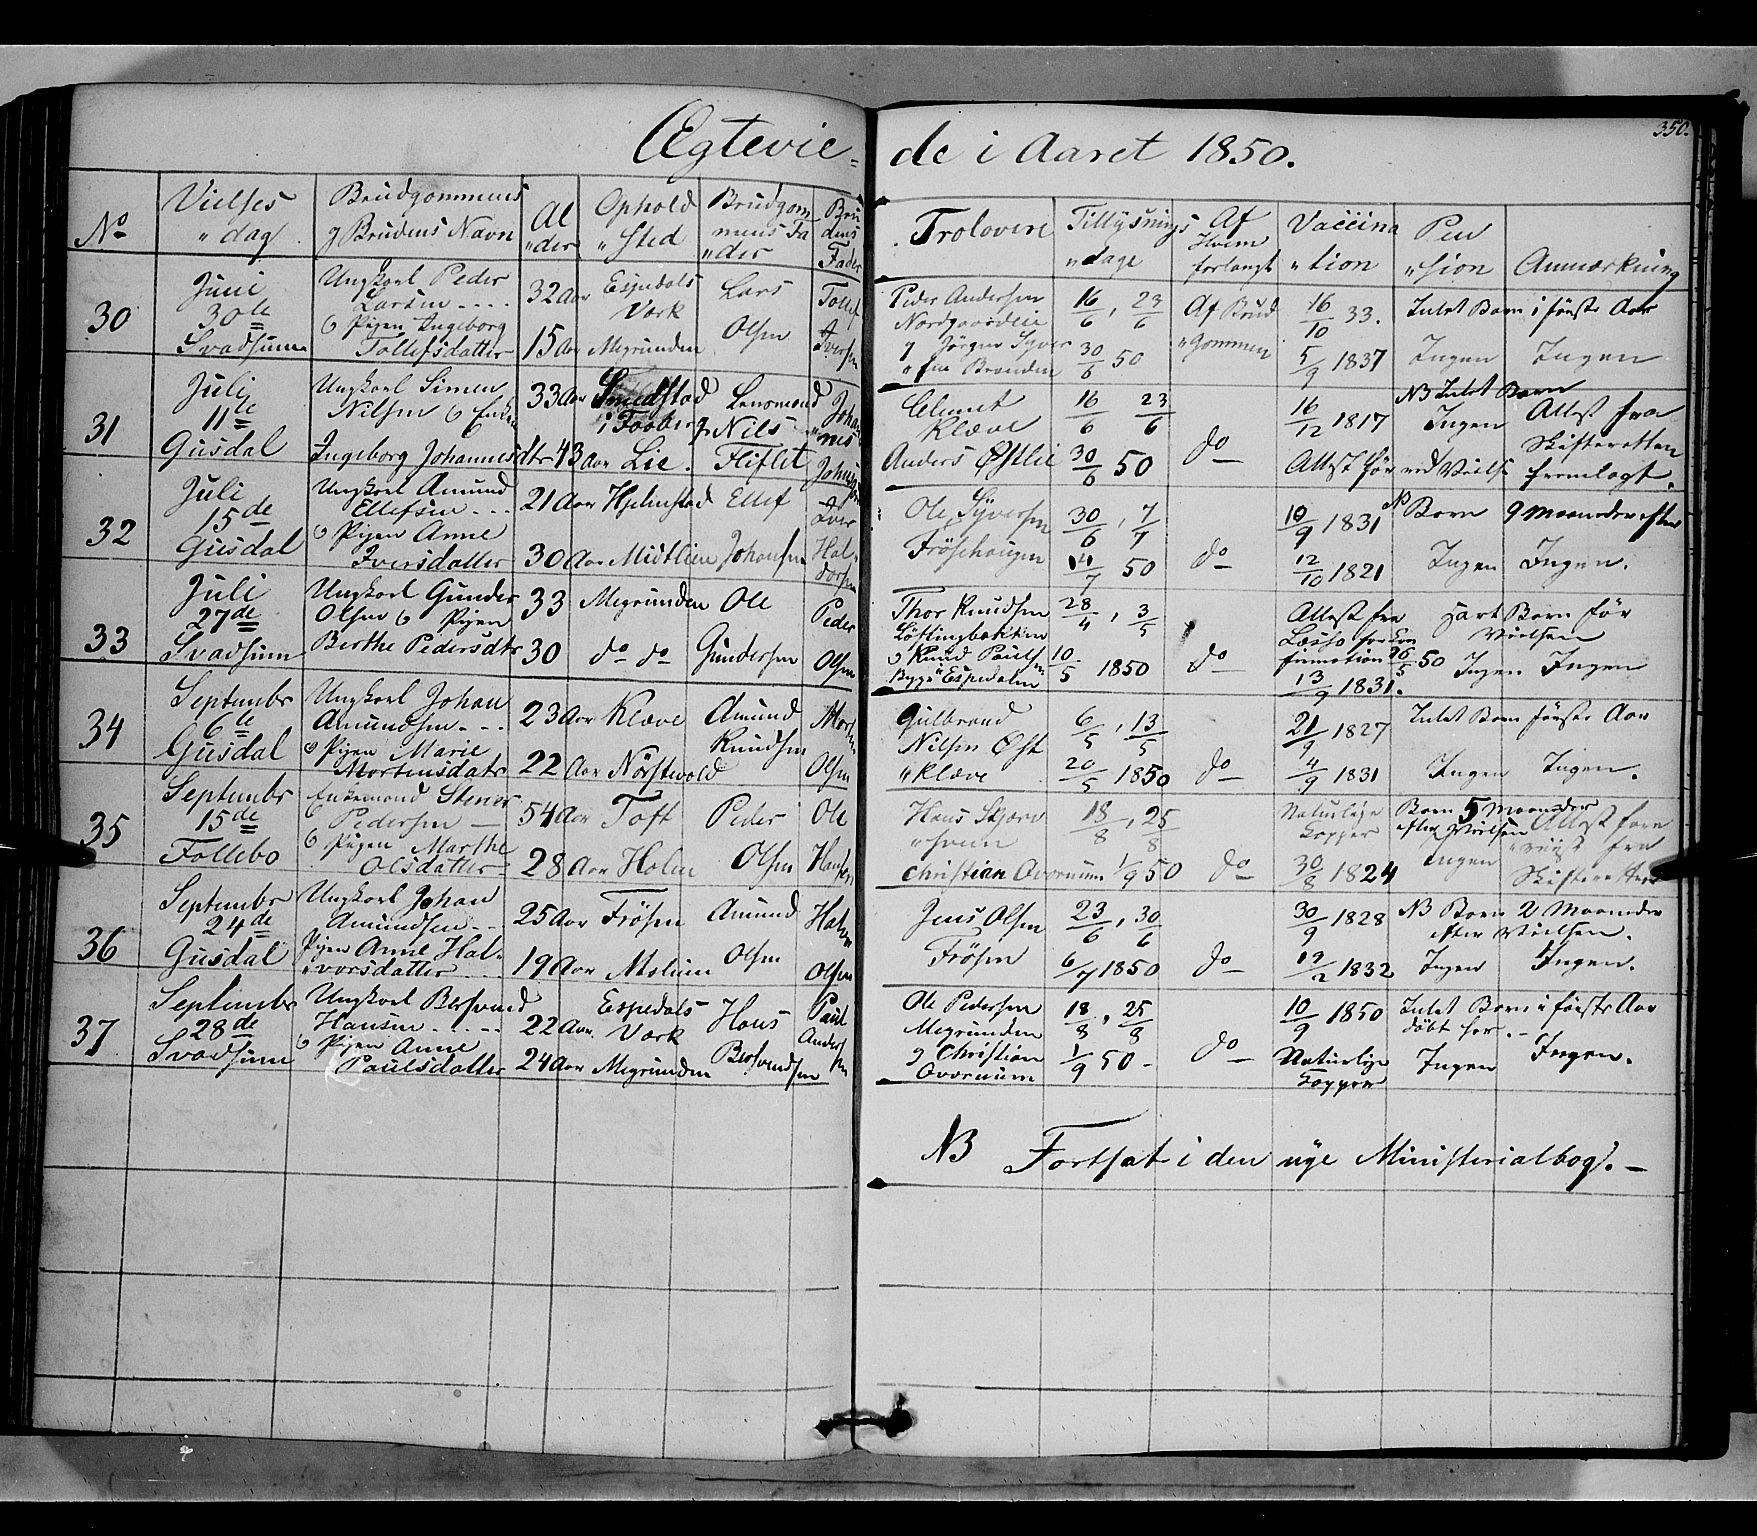 350.
Ægtevie= de i Aaret 1850.
No
Vielses
" dag
Brudgommens
og Brudens Navn
Al
"der
Ophold
" sted
Brudgom
mens Fa
"der
Bru
dens
Fader
Trolovere
Tillysnings
"dage
Af
Hvem
forlangt
Vaccina
"tion
Pen
"sion
Anmærkning
30
Juni
30te
Svadsum
Ungkarl Peder
Larsen ----
& Pigen Ingeborg
Tollefsdatter
32 Aar
15 Aar
Espedals
Værk
Megrunden
Lars
Olsen
Tollef
Iversen
Peder Andersen
Nordgaardeie
og Jørgen Syver
"sen Brænden
16/6, 23/6
30/6 50
Af Brud
"gommen
16/10 33.
5/9 1837
Intet Barn i første Aar
Ingen
Ingen
31
Juli
11te
Gusdal
Ungkarl Simen
Nilsen & Enke
Ingeborg Johannesdtr
33 Aar
43 Aar
Smedstad
i Faaberg
Lie.
Lensmand
Nils
Fliflet
Johan
"nes
Johnsen
Clemet
Klæve
Anders Østlie
16/6 23/6
30/6 50
do
16/12 1817
Attest før ved Vielse
NB Intet Barn
Ingen
Attest fra
Skifteretten
fremlagt.
32
Juli
15de
Gusdal
Ungkarl Amund
Ellefsen ---
& Pigen Anne
Iversdatter
21 Aar
30 Aar
Hjelmstad
Midtlien
Ellef
Johansen
Iver
Hal-
vorsen
Ole Syversen
Frøsehaugen
30/6, 7/7
14/7 50
do
10/9 1831
12/10 1821
NB Barn 9 Maaneder efter
Ingen
Ingen.
33
Juli
27de
Svadsum
Ungkarl Gunder
Olsen & Pigen
Berthe Pedersdtr
33
30
Megrunden
do do
Ole
Gundersen
Peder
Olsen
Thor Knudsen
Løstingbakken
& Knud Paulsen
Bygg" Espedalen
28/4, 3/5
10/5 1850
do
Attest fra
Lassø for Con
firmation 26/5 50
13/9 1831.
havt Barn før
Vielsen
Ingen
Ingen
34
Septembr
6te
Gusdal
Ungkarl Johan
Amundsen. ---
& Pigen Marie
Mortensdatr
23 Aar
22 Aar
Klæve
Nørstevold
Amund
Knudsen
Morten
Olsen
Gulbrand
Nilsen Øst
"klæve
6/5, 13/5
20/5 1850
do
21/9 1827
4/9 1831
Intet Barn første Aar
Ingen
Ingen.
35
Septembr
15de
Follebo
Enkemand Stener
Pedersen —
& Pigen Marthe
Olsdatter
54 Aar
28 Aar
Toft
Holen
Peder
Olsen
Ole
Hansen
Hans Skjæve
"sveen
Christian Overnum
18/8, 25/8
1/9 50
do
Naturlige
Kopper
30/8 1824
Barn 5 Maaneder
efter Vielsen
Ingen
Attest fore
"viist fra
Skifteretten
36
Septembr
24de
Gusdal
Ungkarl Johan
Amundsen --
Pigen Anne Hal-
"vorsdatter
25 Aar
19 Aar
Frøsen
Molium
Amund
Olsen
Halvor
Olsen
Jens Olsen
Frøsen
23/6, 30/6
6/7 1850
do
30/9 1828
19/2 1832
NB Barn 2 Maaneder
efter Vielsen.
Ingen
Ingen.
37
Septembr
28de
Svadsum
Ungkarl Bersvend
Hansen -----
& Pigen Anne
Paulsdatter
22 Aar
24 Aar
Espedals
Værk
Megrunden
Hans
Bersvendsen
Paul
Anders
sen
Ole Pedersen
Megrunden
og Christian
Overnum
18/8, 25/8
1/9 50 -
do
10/9 1850
Naturlige
Kopper
Intet Barn i første Aar
døbt her. -
Ingen
Ingen.
NB Fortsat i den nye Ministerialbog. —